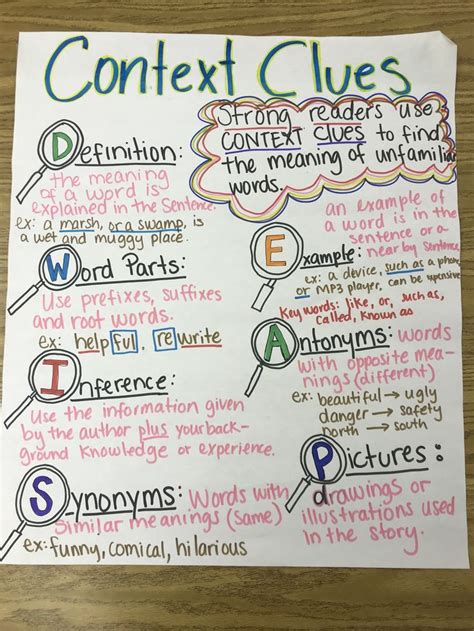 Context Clues
Strong readers use
CONTEXT CLUES to find
the meaning of unfamiliar
words.
Definition:
the meaning
of a word is
explained in the sentence.
ex: a marsh, or a swamp, is
a wet and muggy place.
Word Parts:
Use prefixes, suffixes
and root words.
ex: helpful, rewrite
Inference:
Use the information given
by the author plus your back-
ground knowledge or experience.
Synonyms: Words with
similar meanings (same)
ex: funny, comical, hilarious
an example of
a word is in the
sentence or a
Example: near by sentence.
ex: a device, such as a phone
or MP3 player, can be expensive
Key words: like, or, such as,
called, known as
Antonyms: words
with opposite mea-
nings (different)
ex: beautiful → ugly
danger → safety
north → south
Pictures:
drawings or
illustrations used
in the story.